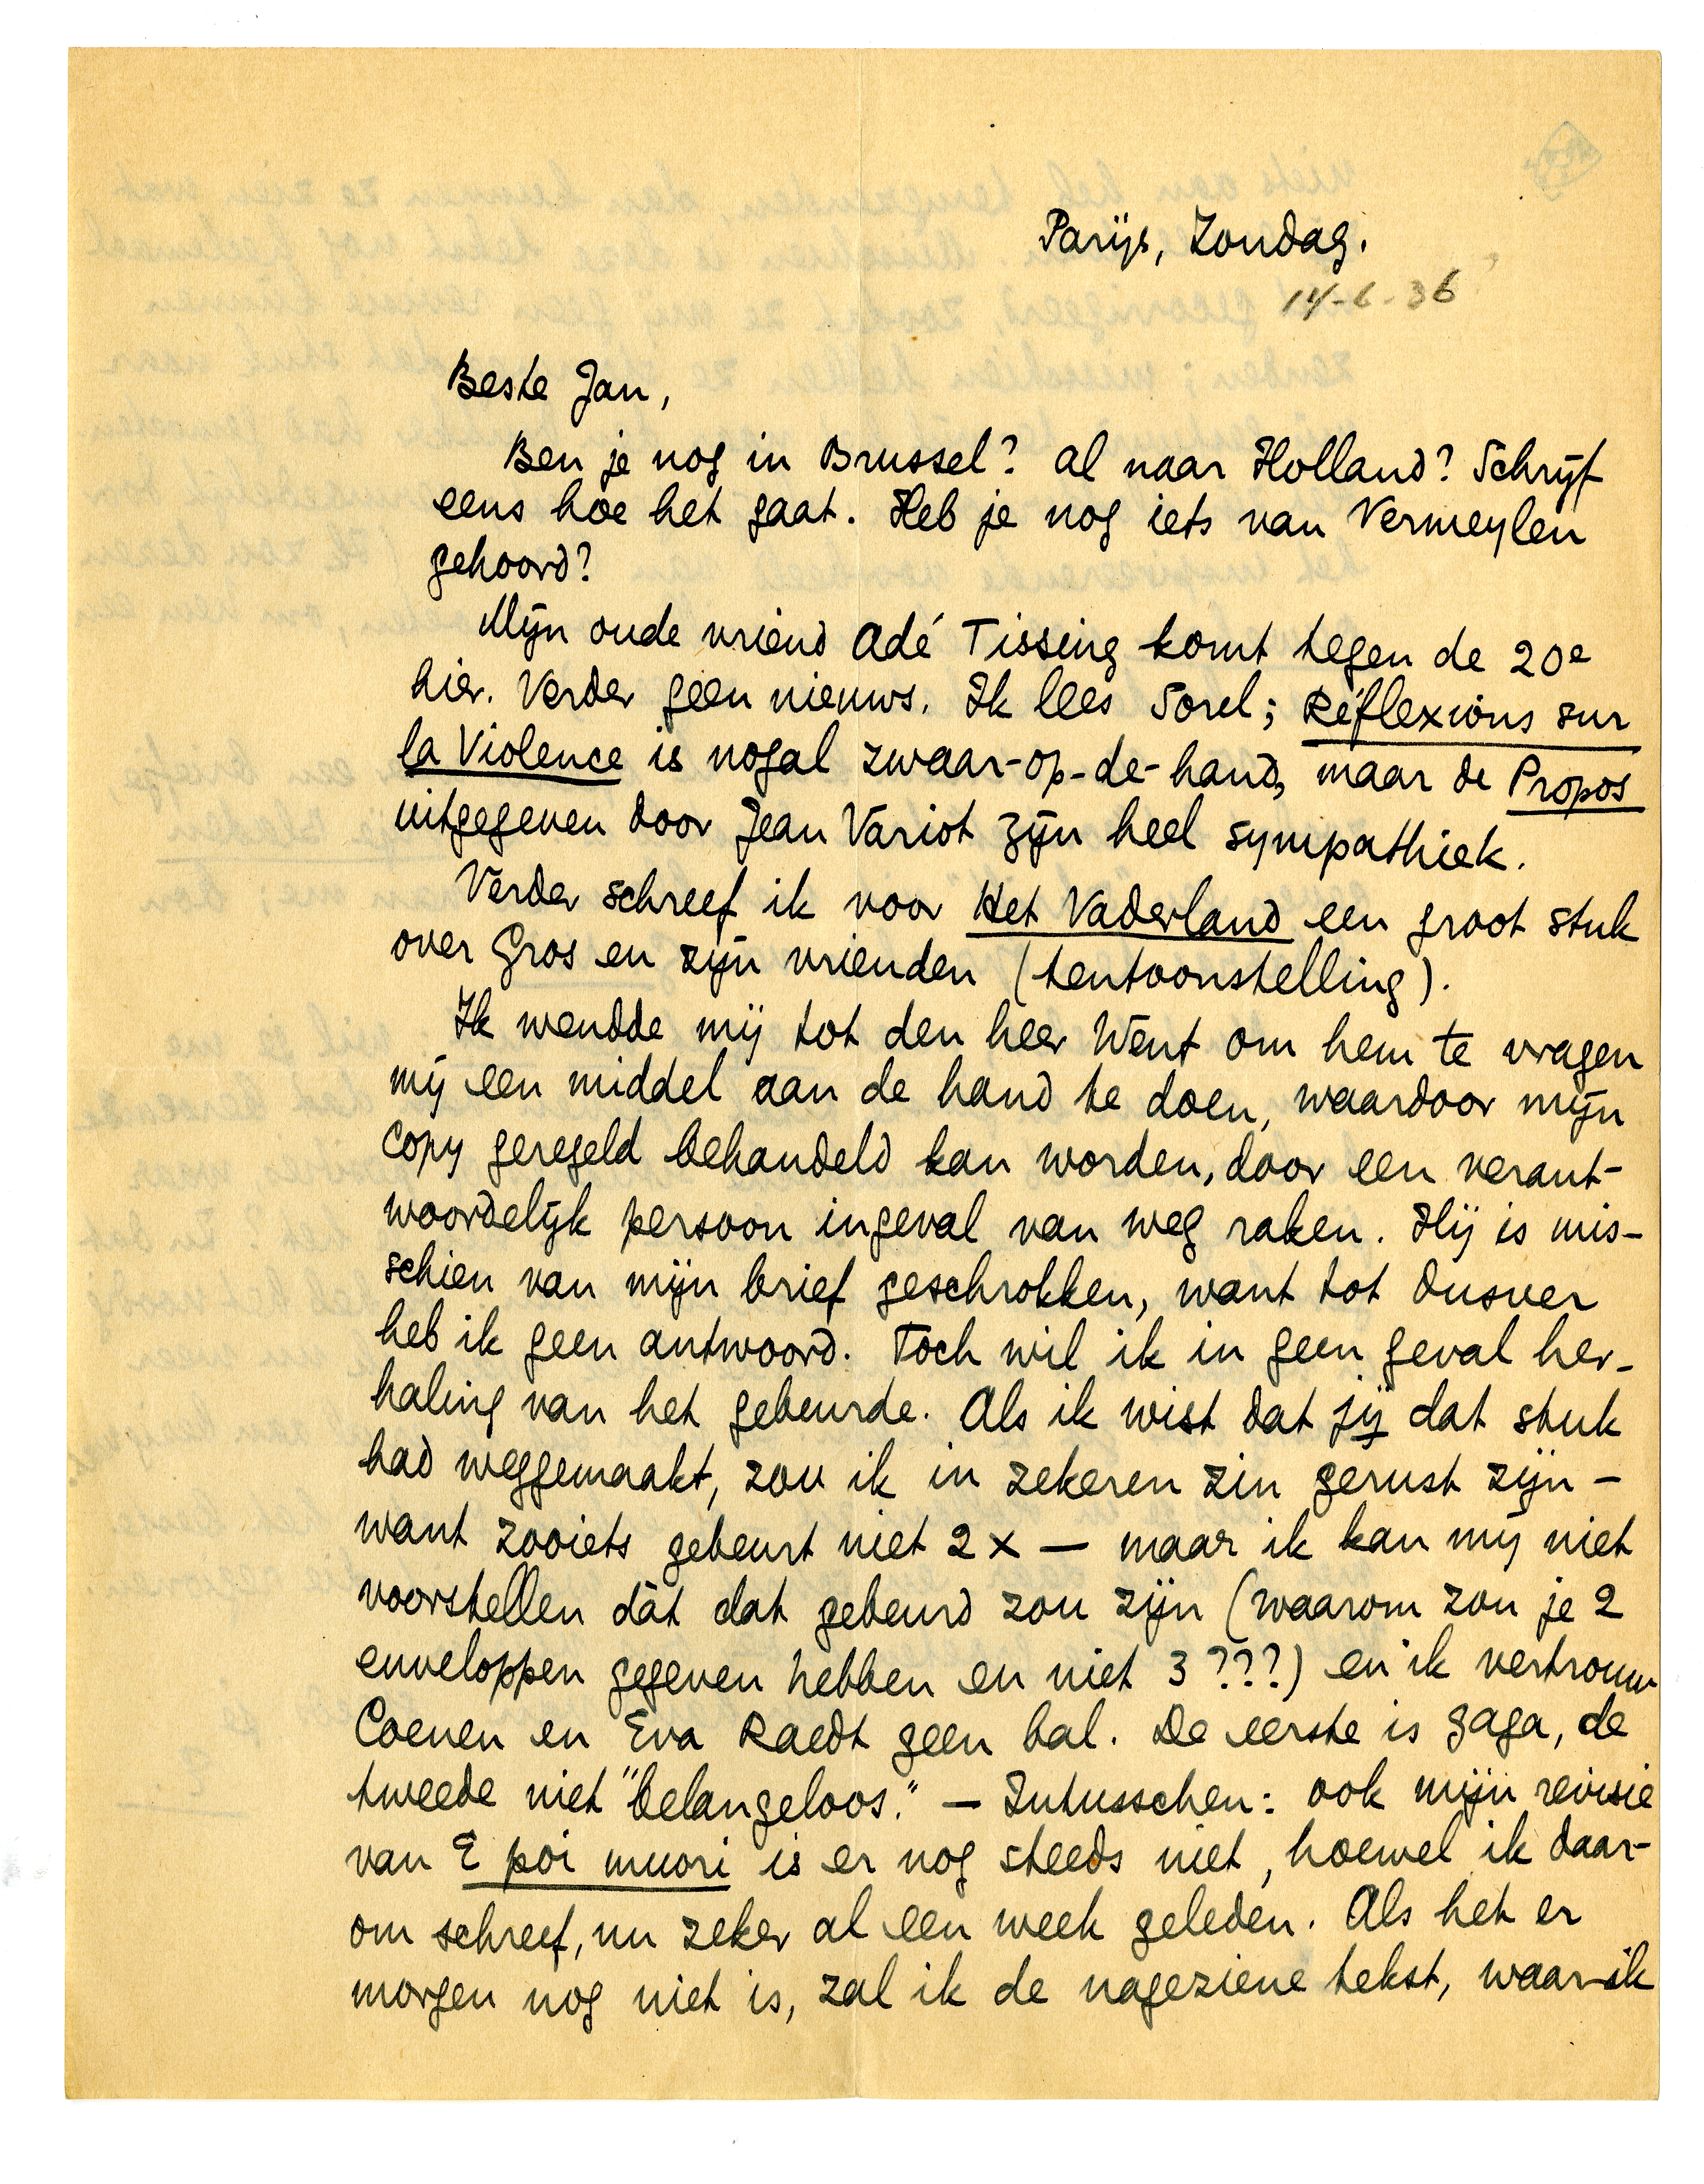 Parijs, Zondag.
14-6-36
Beste Jan,
Ben je nog in Brussel? al naar Holland? Schrijf
eens hoe het gaat. Heb je nog iets van Vermeylen
gehoord?
Mijn oude vriend Adé Tissing komt tegen de 20e
hier. Verder geen nieuws. Ik lees Sorel; Réflexions sur
la Violence is nogal zwaar-op-de-hand, maar de Propos
uitgegeven door Jean Variot zijn heel sympathiek.
Verder schreef ik voor Het Vaderland een groot stuk
over Gros en zijn vrienden (tentoonstelling).
Ik wendde mij tot den heer Went om hem te vragen
mij een middel aan de hand te doen, waardoor mijn
copy geregeld behandeld kan worden, door een verant-
woordelijk persoon ingeval van weg raken. Hij is mis-
schien van mijn brief geschrokken, want tot dusver
heb ik geen antwoord. Toch wil ik in geen geval her-
haling van het gebeurde. Als ik wist dat jij dat stuk
had weggemaakt, zou ik in zekeren zin gerust zijn –
want zooiets gebeurt niet 2 x — maar ik kan mij niet
voorstellen dàt dat gebeurd zou zijn (waarom zou je 2
enveloppen gegeven hebben en niet 3???) en ik vertrouw
Coenen en Eva Raedt geen bal. De eerste is gaga, de
tweede niet "belangeloos." — Intusschen: ook mijn revisie
van E poi muori is er nog steeds niet, hoewel ik daar-
om schreef, nu zeker al een week geleden. Als het er
morgen nog niet is, zal ik de nageziene tekst, waar ik